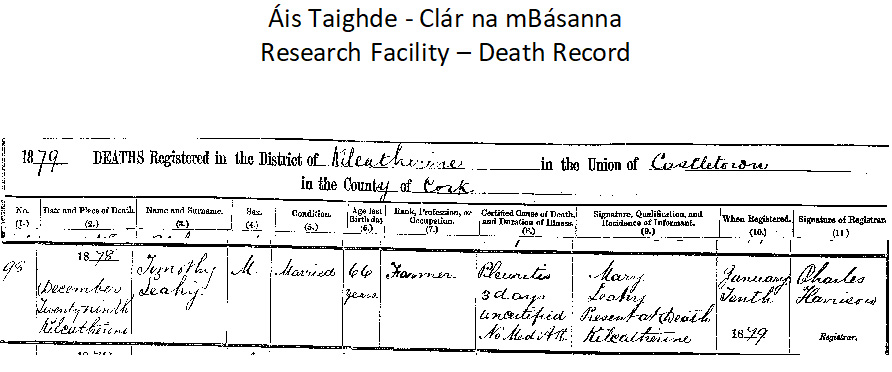 Áis Taighde - Clár na mBásanna
Research Facility – Death Record
1879 DEATHS Registered in the District of Kilcatherine in the Union of Castletown
in the County of Cork
No. (1.) Date and Place of Death. (2.) Name and Surname. (3.) Sex. (4.) Condition. (5.) Age last Birthday (6.) Rank, Profession, or Occupation. (7.) Certified Cause of Death, and Duration of Illness. (8.) Signature, Qualification, and Residence of Informant. (9.) When Registered. (10.) Signature of Registrar. (11)
98
1878
December
Twenty ninth
Kilcatherine
Timothy
Leahy
M.
Married
66
years
Farmer
Pleuritis
3 days
uncertified
No Med Att.
Mary
Leahy
Present at Death
Kilcatherine
January
Tenth
1879
Charles
Harrison
Registrar.